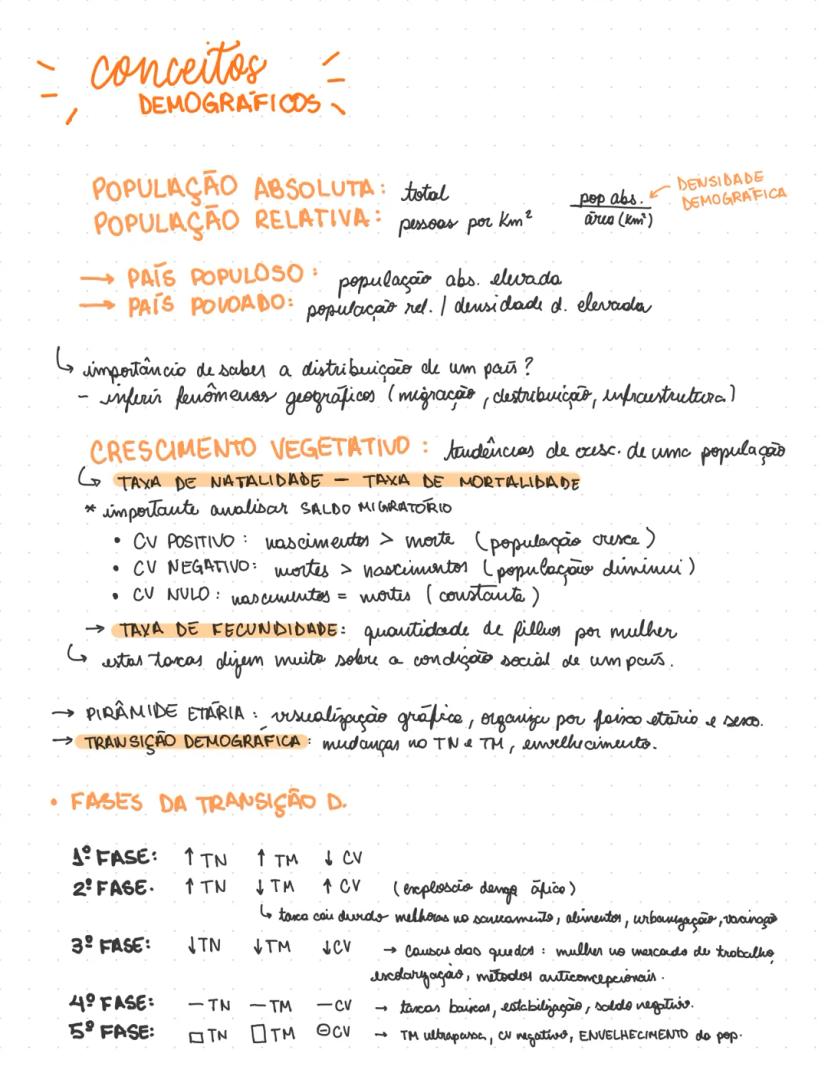 conceitos
DEMOGRÁFICOS
POPULAÇÃO ABSOLUTA: total
POPULAÇÃO RELATIVA: pessoas por Km²
pop abs.
área (Km²)
← DENSIDADE
DEMOGRÁFICA
→ PAÍS POPULOSO: população abs. elevada
→ PAÍS POVOADO: população rel. / densidade d. elevada
↳ importâncio de saber a distribuição de um país?
- inferir fenômenos geográficos (migração, distribuição, infraestrutura)
CRESCIMENTO VEGETATIVO: tendências de cresc. de uma população
↳ TAXA DE NATALIDADE - TAXA DE MORTALIDADE
* importante analisar SALDO MIGRATÓRIO
• CV POSITIVO: nascimentos > morte (população cresce)
• CV NEGATIVO: mortes > nascimentos (população diminui)
• CV NULO: nascimentos = mortes (constante)
→ TAXA DE FECUNDIDADE: quantidade de filhos por mulher
↳ estas taxas dizem muito sobre a condição social de um país.
→ PIRÂMIDE ETÁRIA: visualização gráfica, organiza por faixa etário e sexo.
→ TRANSIÇÃO DEMOGRÁFICA: mudanças no TN e TM, envelhecimento.
• FASES DA TRANSIÇÃO D.
1º FASE: ↑ TN ↑ TM ↓ CV
2º FASE. ↑ TN ↓ TM ↑ CV (explosão demográfica)
↳ taxa cai devido melhoras no saneamento, alimentos, urbanização, vacinação
3º FASE: ↓TN ↓TM ↓CV → causas das quedas: mulher no mercado de trabalho,
escolarização, métodos anticoncepcionais.
4º FASE: -TN -TM -CV → taxas baixas, estabilização, saldo negativo.
5º FASE: □TN □TM ⊖CV → TM ultrapassa, CV negativo, ENVELHECIMENTO da pop.